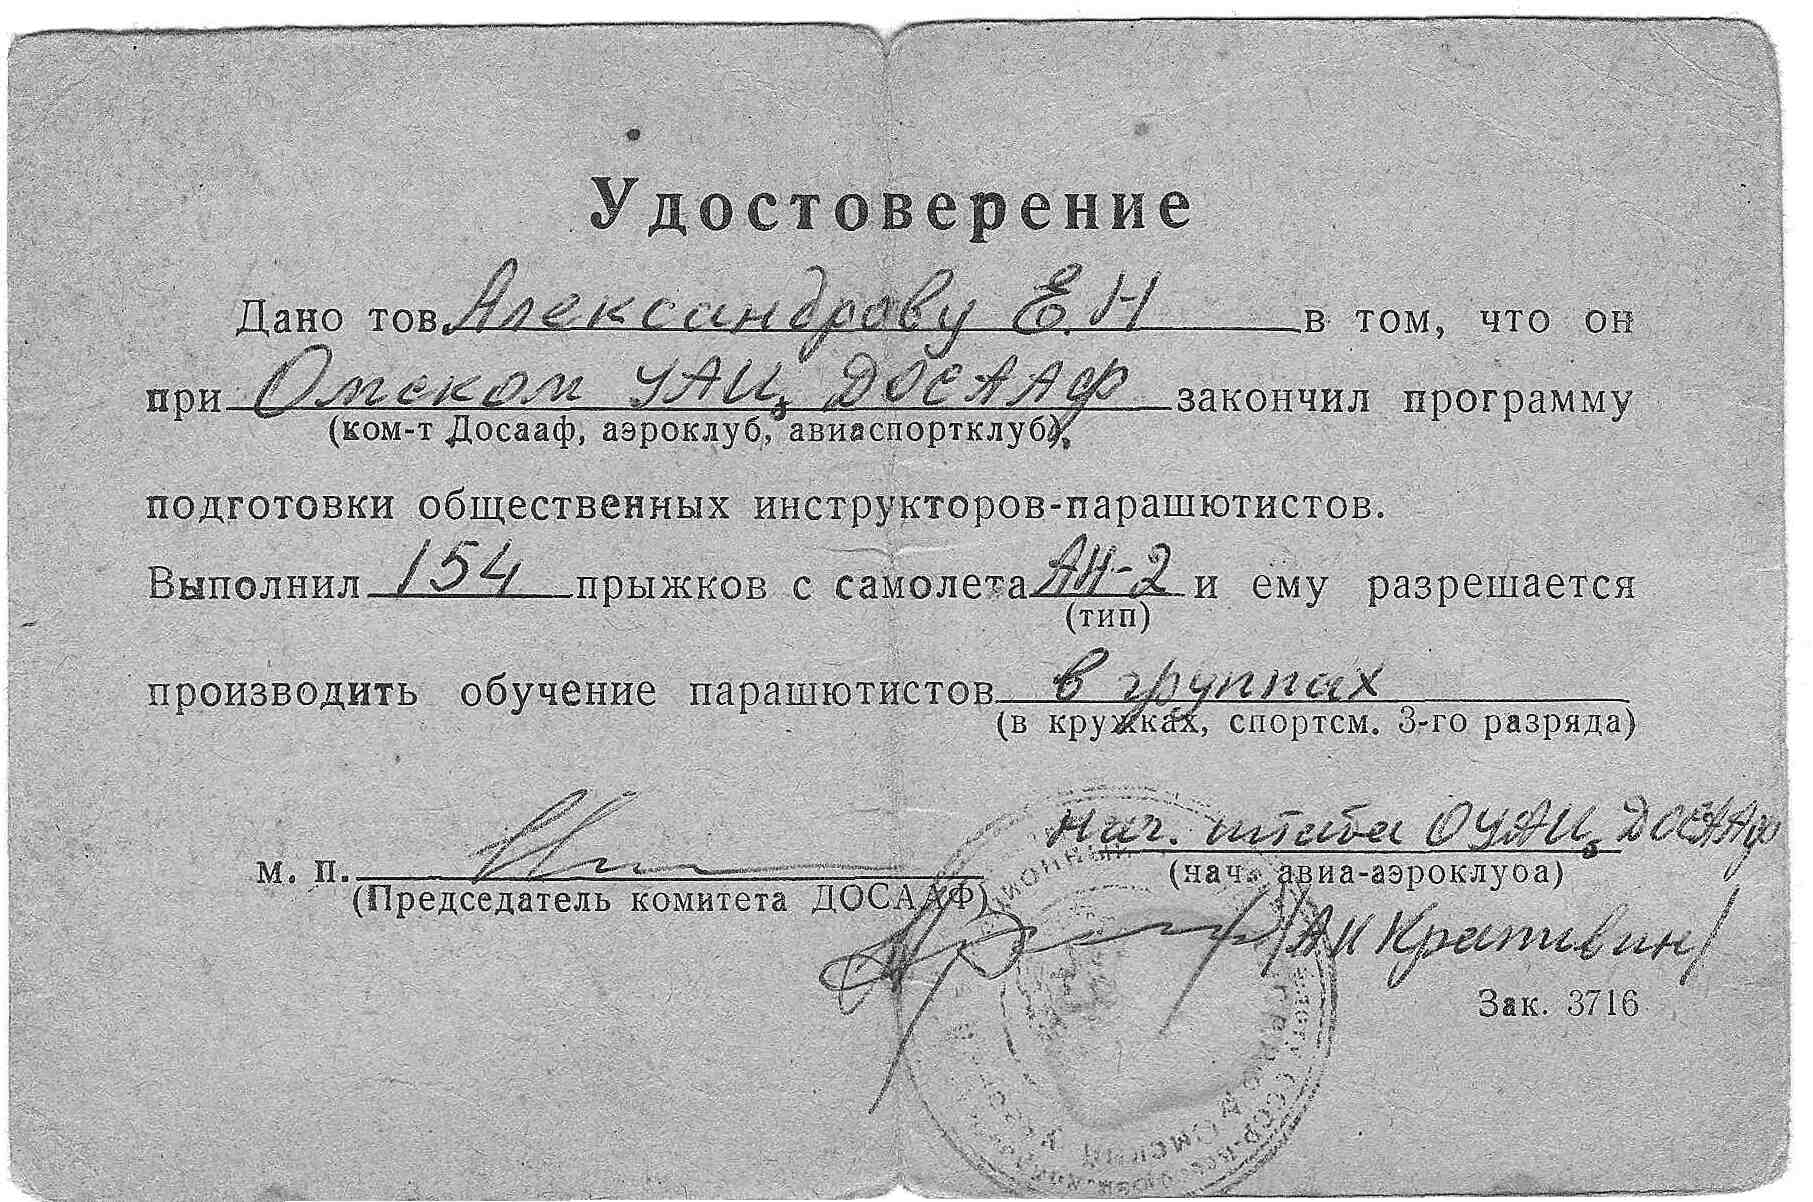 Удостоверение
Дано тов. Александрову Е.Н в том, что он
при Омском УАЦ ДОСААФ закончил программу
(ком-т Досааф, аэроклуб, авиаспортклуб),
подготовки общественных инструкторов-парашютистов.
Выполнил 154 прыжков с самолета АН-2 и ему разрешается
(тип)
производить обучение парашютистов в группах
(в кружках, спортсм. 3-го разряда)
Нач. штаба ОУАЦ ДОСААФ
м. п.
(нач. авиа-аэроклуба)
(Председатель комитета ДОСААФ)
Зак. 3716